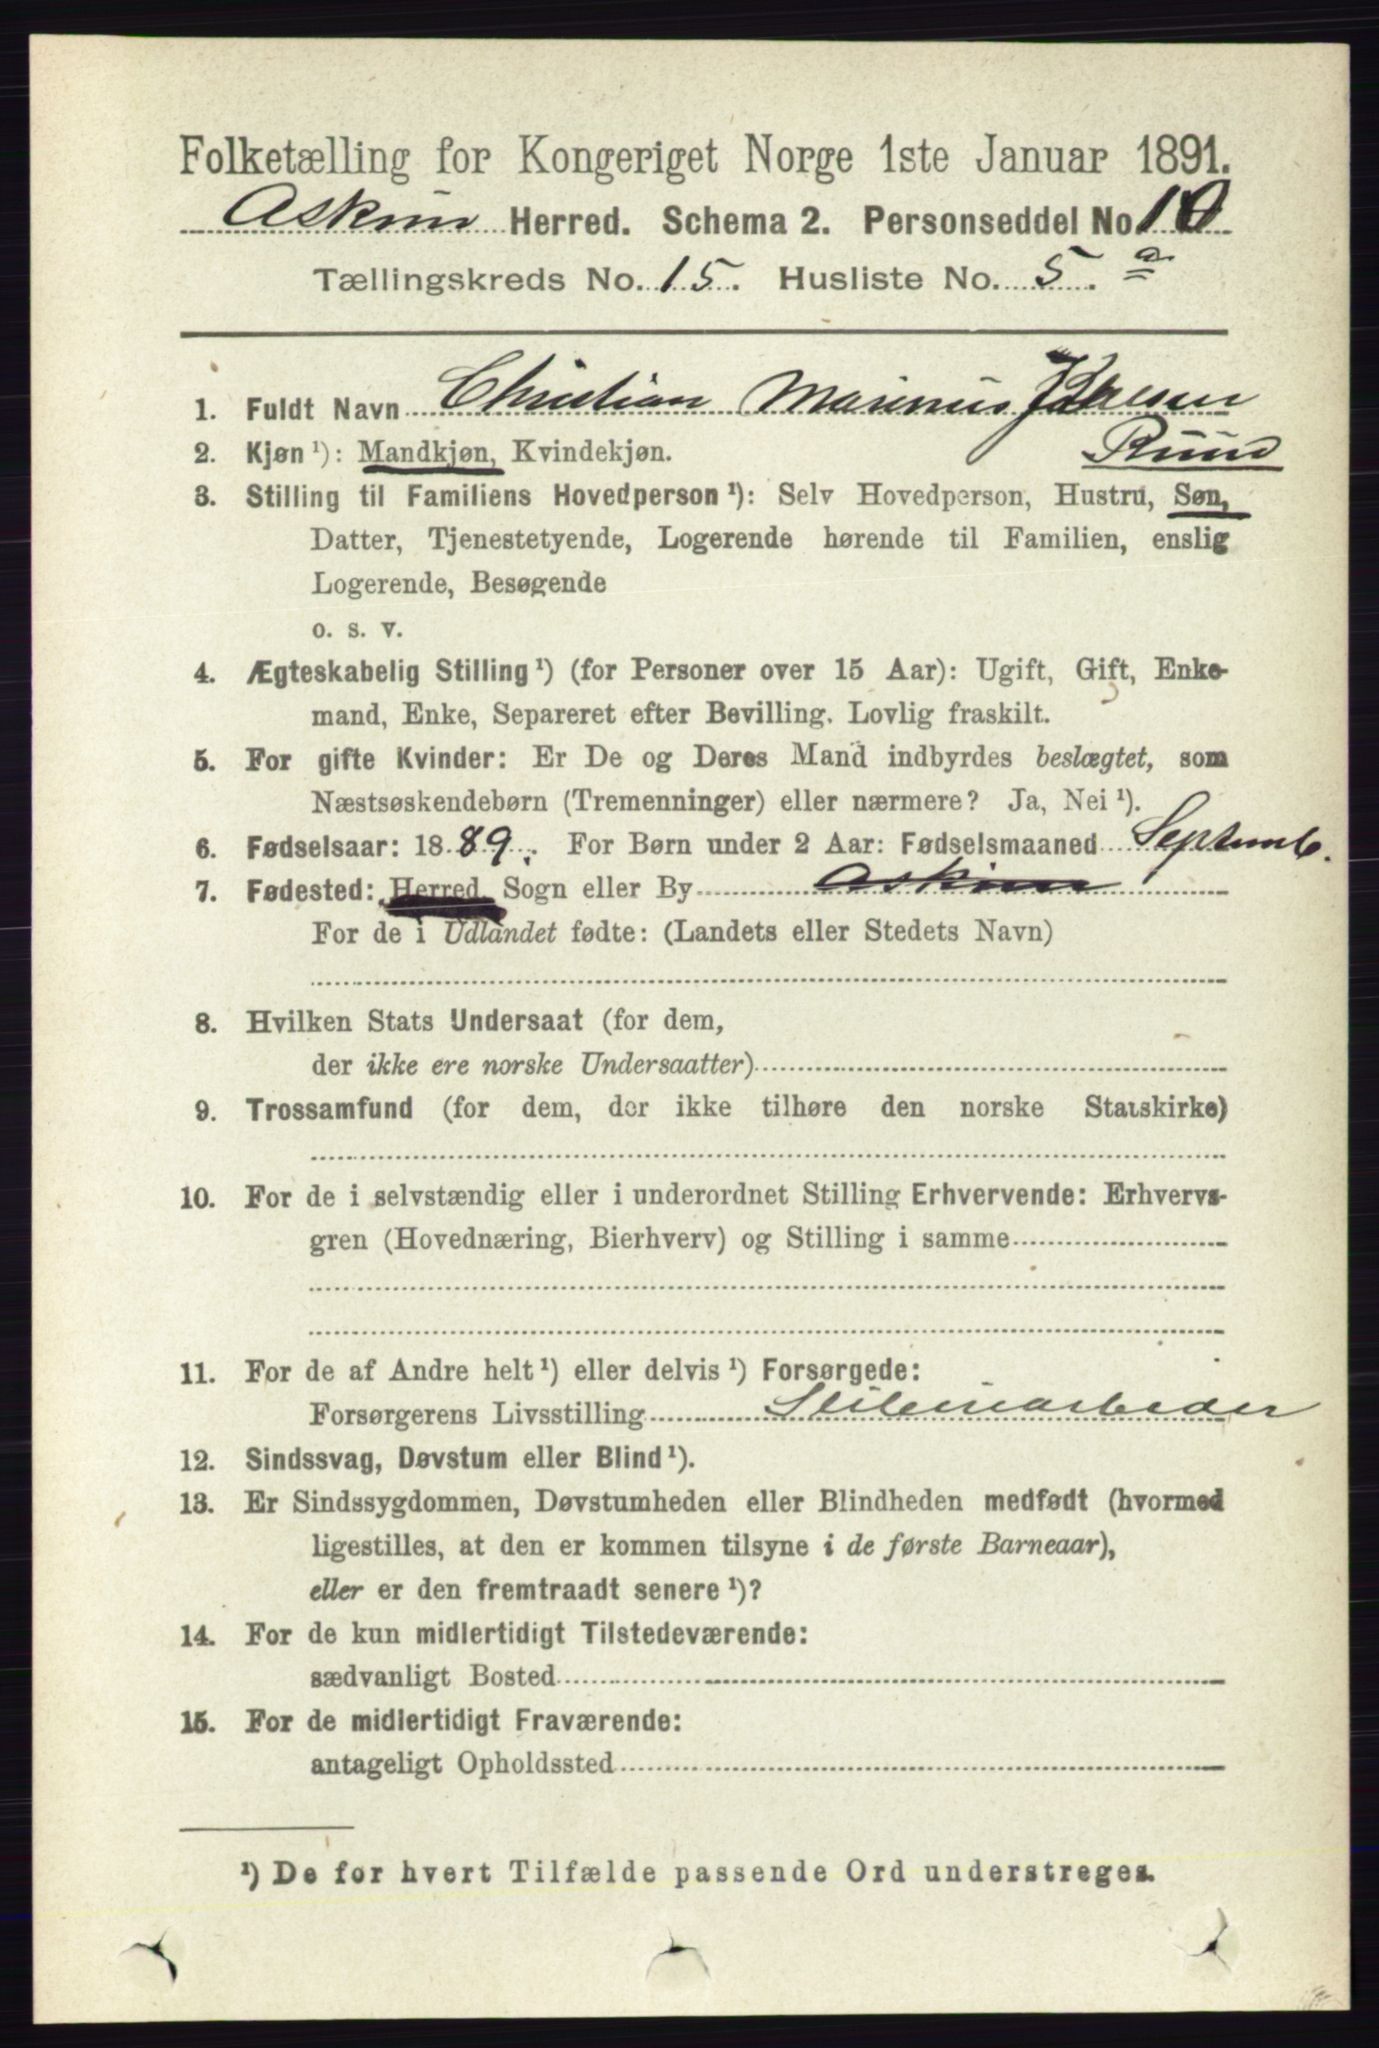 Folketælling for Kongeriget Norge 1ste Januar 1891.
Askim Herred. Schema 2. Personseddel No. 10
Tællingskreds No. 15. Husliste No. 5. a
1. Fuldt Navn Christian Marinus
2. Kjøn ¹): Mandkjøn, Kvindekjøn. Ruud
3. Stilling til Familiens Hovedperson ¹): Selv Hovedperson, Hustru, Søn,
Datter, Tjenestetyende, Logerende hørende til Familien, enslig
Logerende, Besøgende
o. s. v.
4. Ægteskabelig Stilling ¹) (for Personer over 15 Aar): Ugift, Gift, Enke-
mand, Enke, Separeret efter Bevilling. Lovlig fraskilt.
5. For gifte Kvinder: Er De og Deres Mand indbyrdes beslægtet, som
Næstsøskendebørn (Tremenninger) eller nærmere? Ja, Nei ¹).
6. Fødselsaar: 1889. For Børn under 2 Aar: Fødselsmaaned Septemb.
7. Fødested: Herred, Sogn eller By Askim
For de i Udlandet fødte: (Landets eller Stedets Navn)
8. Hvilken Stats Undersaat (for dem,
der ikke ere norske Undersaatter)
9. Trossamfund (for dem, der ikke tilhøre den norske Statskirke)
10. For de i selvstændig eller i underordnet Stilling Erhvervende: Erhvervs-
gren (Hovednæring, Bierhverv) og Stilling i samme
11. For de af Andre helt ¹) eller delvis ¹) Forsørgede:
Forsørgerens Livsstilling Sliberiarbeider
12. Sindssvag, Døvstum eller Blind ¹).
13. Er Sindssygdommen, Døvstumheden eller Blindheden medfødt (hvormed
ligestilles, at den er kommen tilsyne i de første Barneaar),
eller er den fremtraadt senere ¹)?
14. For de kun midlertidigt Tilstedeværende:
sædvanligt Bosted
15. For de midlertidigt Fraværende:
antageligt Opholdssted
¹) De for hvert Tilfælde passende Ord understreges.